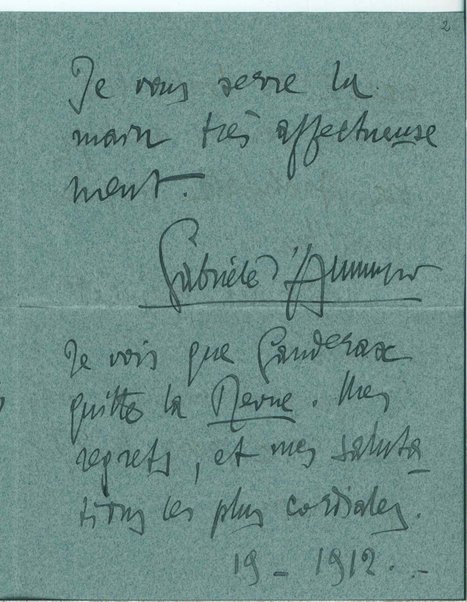 2
Je vous serre la
main très affectueuse
ment.
Gabriele d'Annunzio
Je vois que Ganderax
quitte la Revue. Mes
regrets, et mes saluta
tions les plus cordiales.
19 - 1912. -